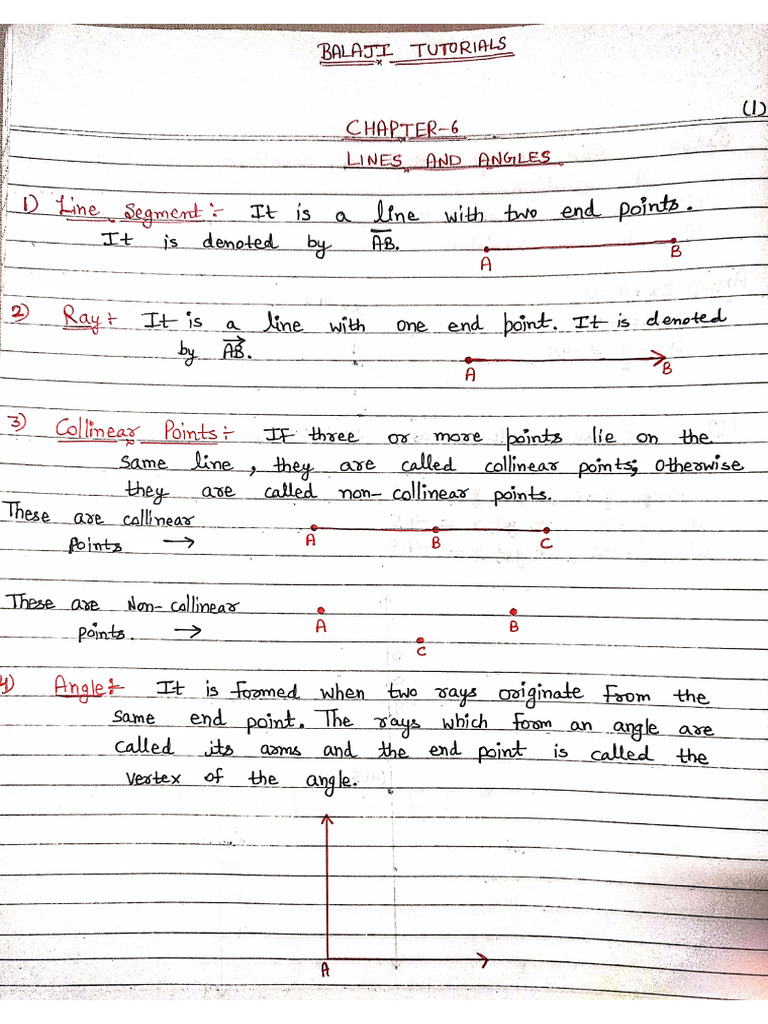 BALAJI TUTORIALS
(1)
CHAPTER-6
LINES AND ANGLES
1) Line Segment:- It is a line with two end points.
It is denoted by A̅B̅.
A B
2) Ray:- It is a line with one end point. It is denoted
by A⃗B⃗.
A B
3) Collinear Points:- If three or more points lie on the
same line, they are called collinear points; otherwise
they are called non-collinear points.
These are collinear
points →
A B C
These are Non-collinear
points. →
A B
C
4) Angle:- It is formed when two rays originate from the
same end point. The rays which form an angle are
called its arms and the end point is called the
vertex of the angle.
A